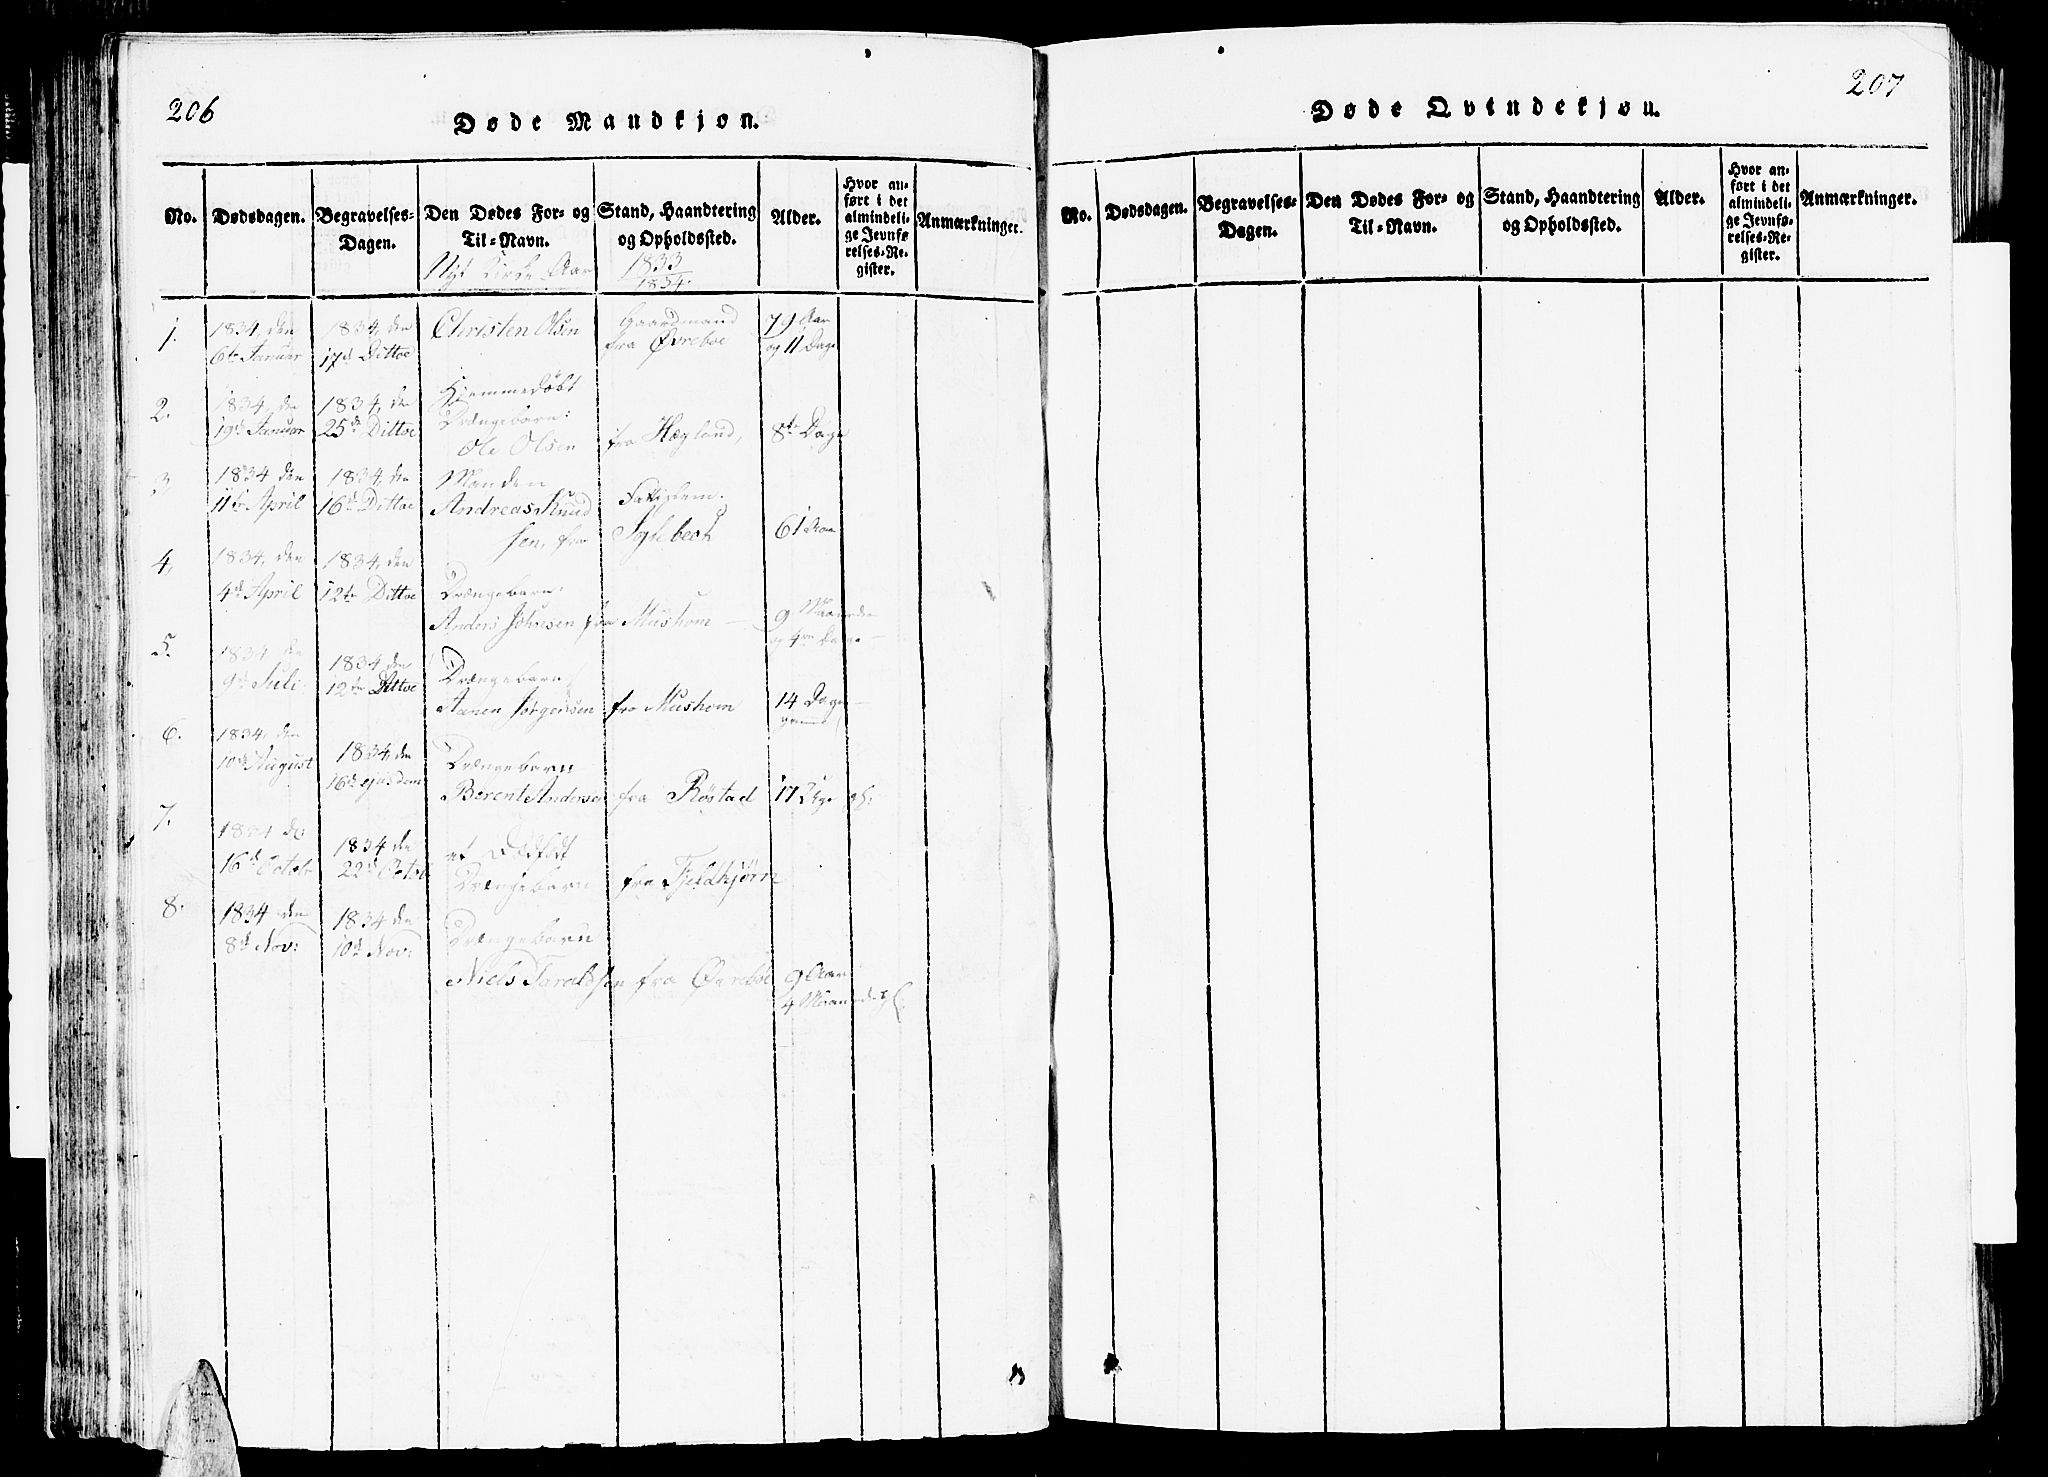 206
Døde Mandkjøn.
No.
Dødsdagen.
Begravelses-
Dagen.
Den Dødes For- og
Til-Navn.
Stand, Haandtering
og Opholdssted.
Alder.
Hvor an-
ført i det
almindeli-
ge Jevnfø-
relses-Re-
gister.
Anmærkninger.
Nyt Kirke Aar
1833
1834.
1.
1834, den
6te Januar
1834, den
17de Dittoe
Christen Olsen
Gaardmand
fra Øvreboe
79 Aar
og 11 Dage
2.
1834, den
19de Januar
1834, den
25de Dittoe
Hjemmedøbt
Drængebarn:
Ole Olsen
fra Hægland,
8te Dage
3
1834 den
11te April
1834, den
16de Dittoe
Manden
Andreas Knud
sen, fra
61 Aar
4,
1834, den
4de April
1834, den
12te Dittoe
Drængebarn:
Anders Johnsen fra Mushom
9 Maaneder
og 4re Dage
5.
1834 den
9de Juli
1834 den
12te Dittoe
Drængebarn
Aanen Jørgensen
fra Mushom
14 Dage
gammel
6.
1834, den
10de August
1834, den
16de ejusdem
Drængebarn
Berent Andersen
fra Röstad
17 Uger gl:
7.
1834 de:
16de Octob:
1834 den
22de Octob
et Dødfødt
Drængebarn
fra Fjeldkjørn
8.
1834 den
8de Nov:
1834 den
10de Nov:
Drængebarn
Niels Taraldsen fra Øvrebøe
9 Aar
4 Maaneder gl.
207
Døde Qvindekjøn.
No.
Dødsdagen.
Begravelses-
Dagen.
Den Dødes For- og
Til-Navn.
Stand, Haandtering
og Opholdssted.
Alder.
Hvor an-
ført i det
almindeli-
ge Jevnfø-
relses-Re-
gister.
Anmærkninger.